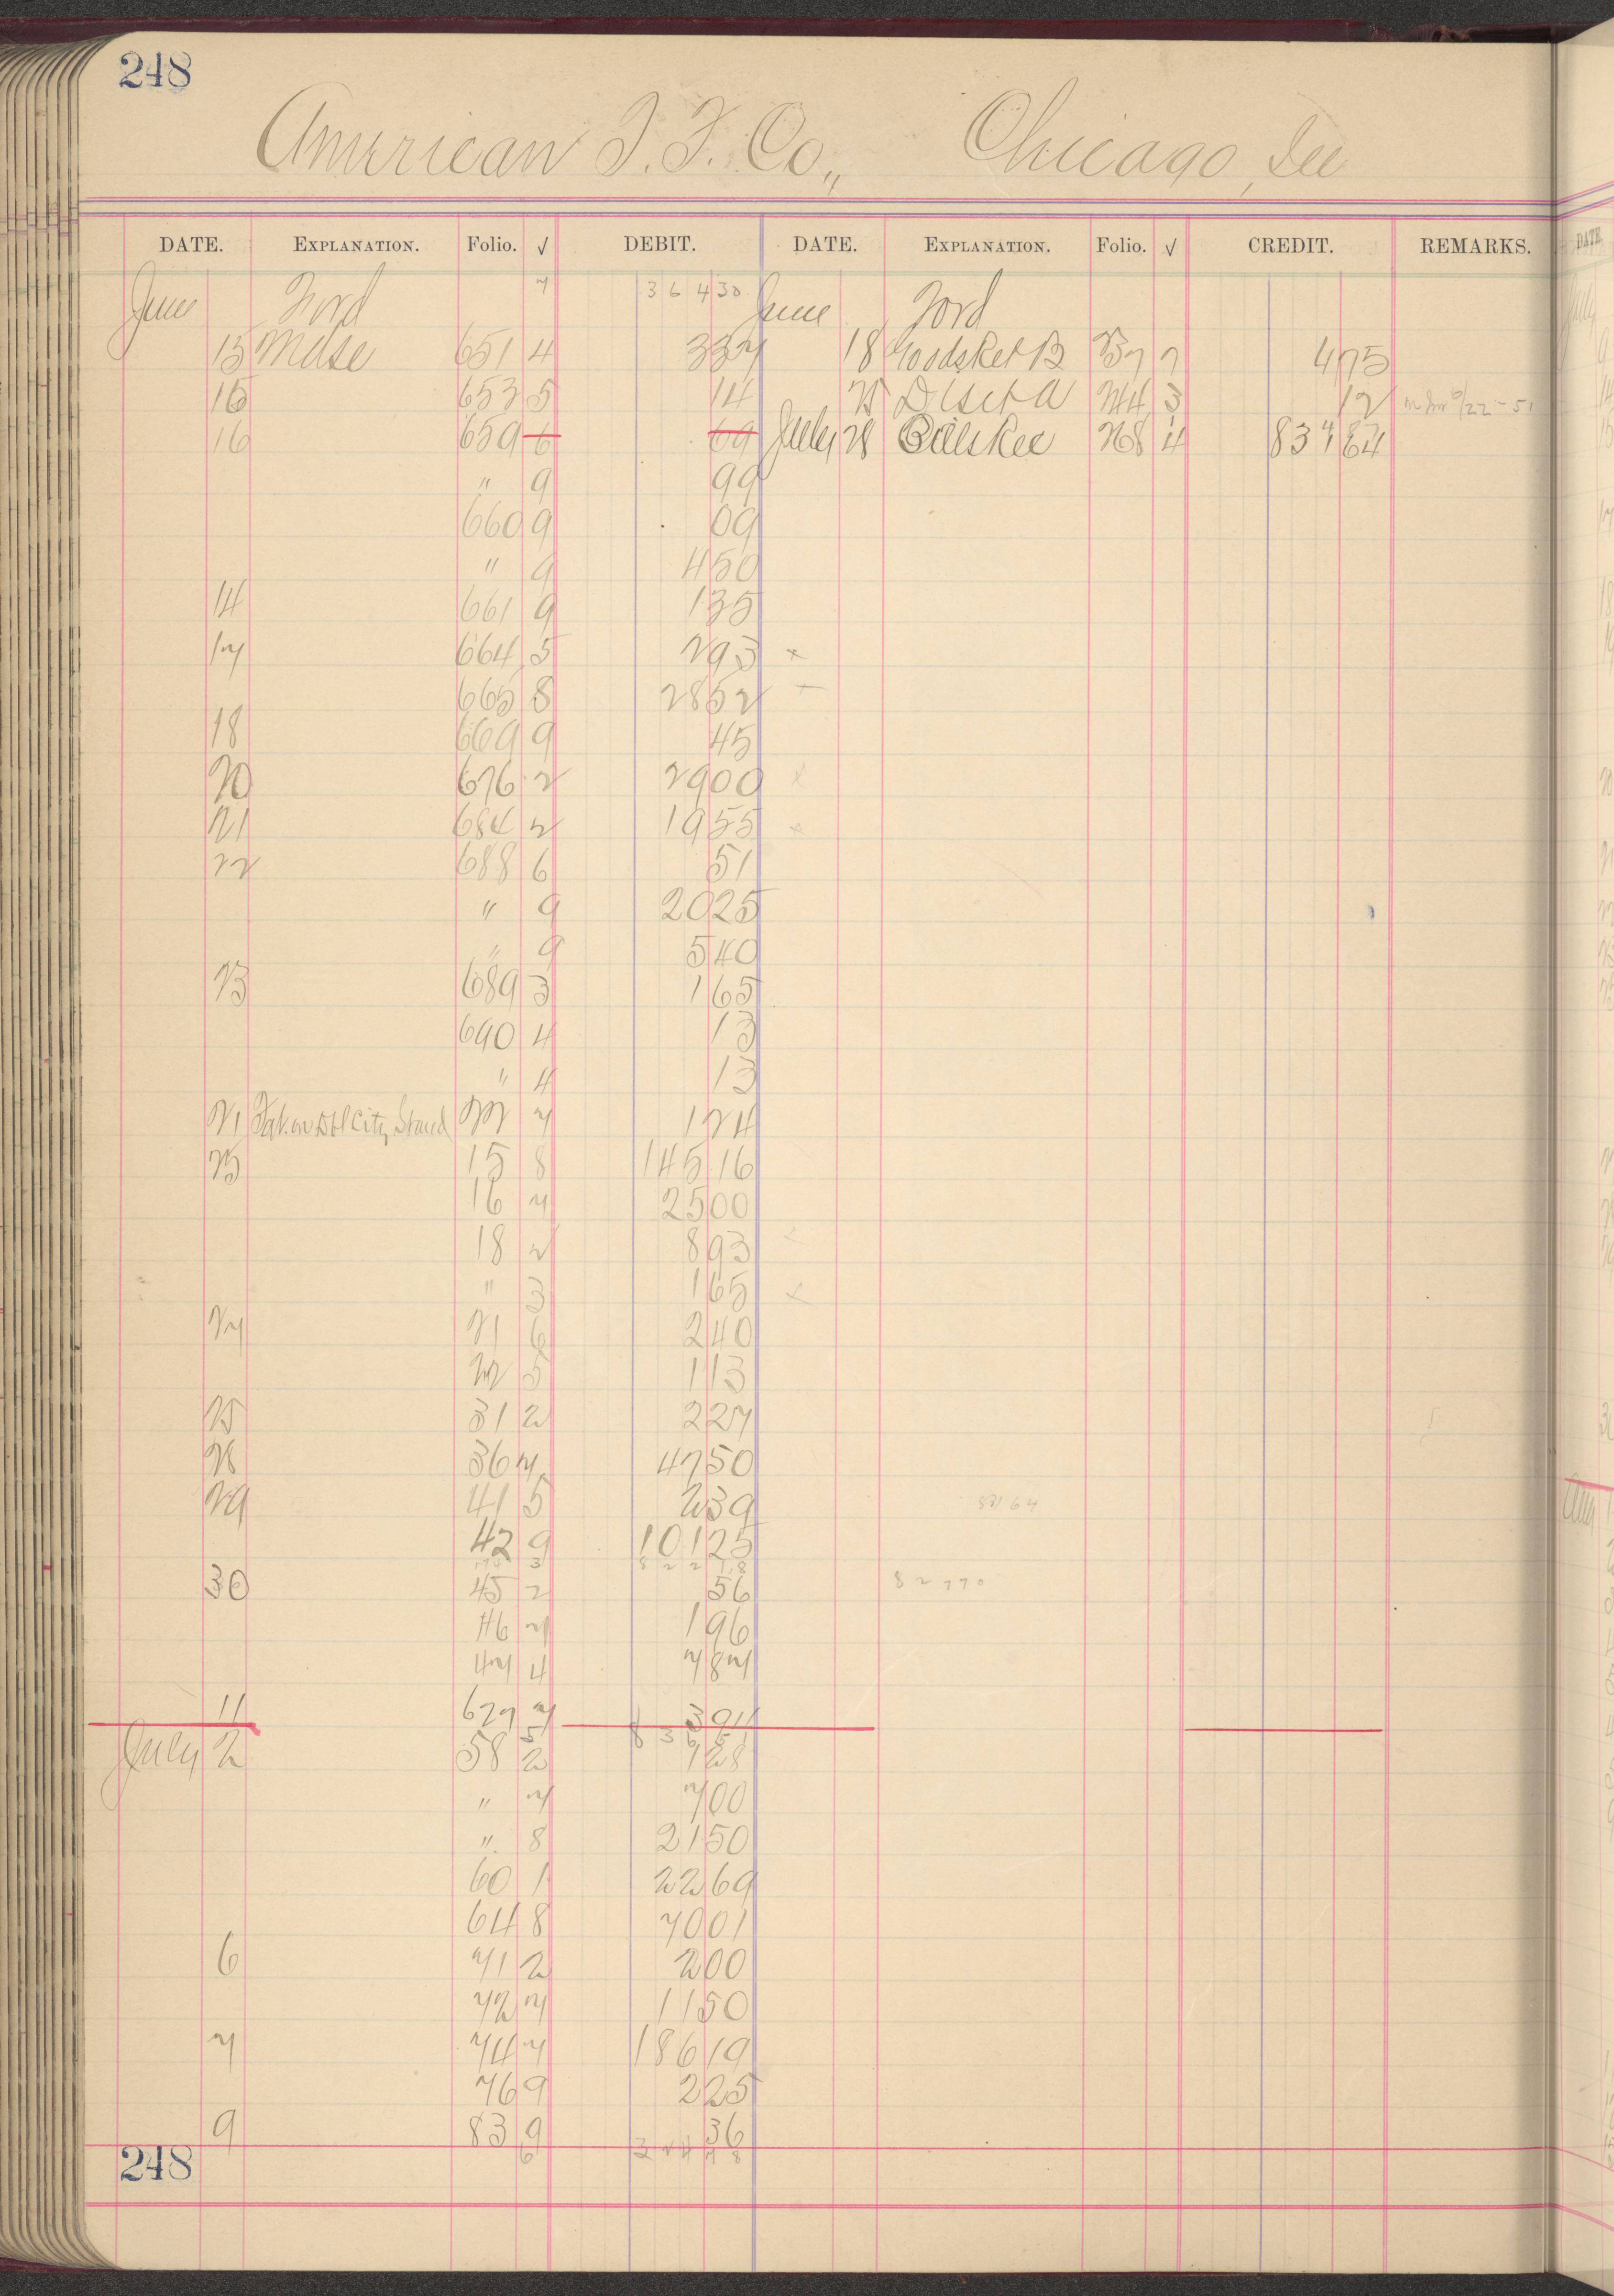 248
American T. F. Co., Chicago, Ill
DATE. EXPLANATION. Folio. √ DEBIT. DATE. EXPLANATION. Folio. √ CREDIT. REMARKS.
June Ford 7 364 30 June Ford
15 Mdse 651 4 3 37 18 37 7 4 75
16 653 5 14 25 244 3 12
16 659 6 69 July 28 268 4 837 64
" 9 99
660 9 09
" 9 4 50
14 661 9 1 35
17 664 5 2 93 x
665 8 28 52
18 669 9 45
20 676 2 29 00 x
21 684 2 19 55 x
22 688 6 51
" 9 20 25
" 9 5 40
23 689 3 1 65
690 4 13
" 4 13
21 City 7 1 24
25 15 8 145 16
16 7 25 00
18 2 8 93
" 3 1 65 x
27 21 6 2 40
22 5 1 13
25 31 2 2 27
28 36 7 47 50
29 41 5 2 39 837 64
42 9 101 25
30 45 2 56 827 70
46 7 1 96
47 4 7 87
11 627 7 3 91
July 2 58 2 1 28
" 7 7 00
" 8 21 50
60 1 22 69
64 8 70 01
6 71 2 2 00
72 7 11 50
7 74 7 186 19
76 9 2 25
9 83 9 36
248 6 324 78